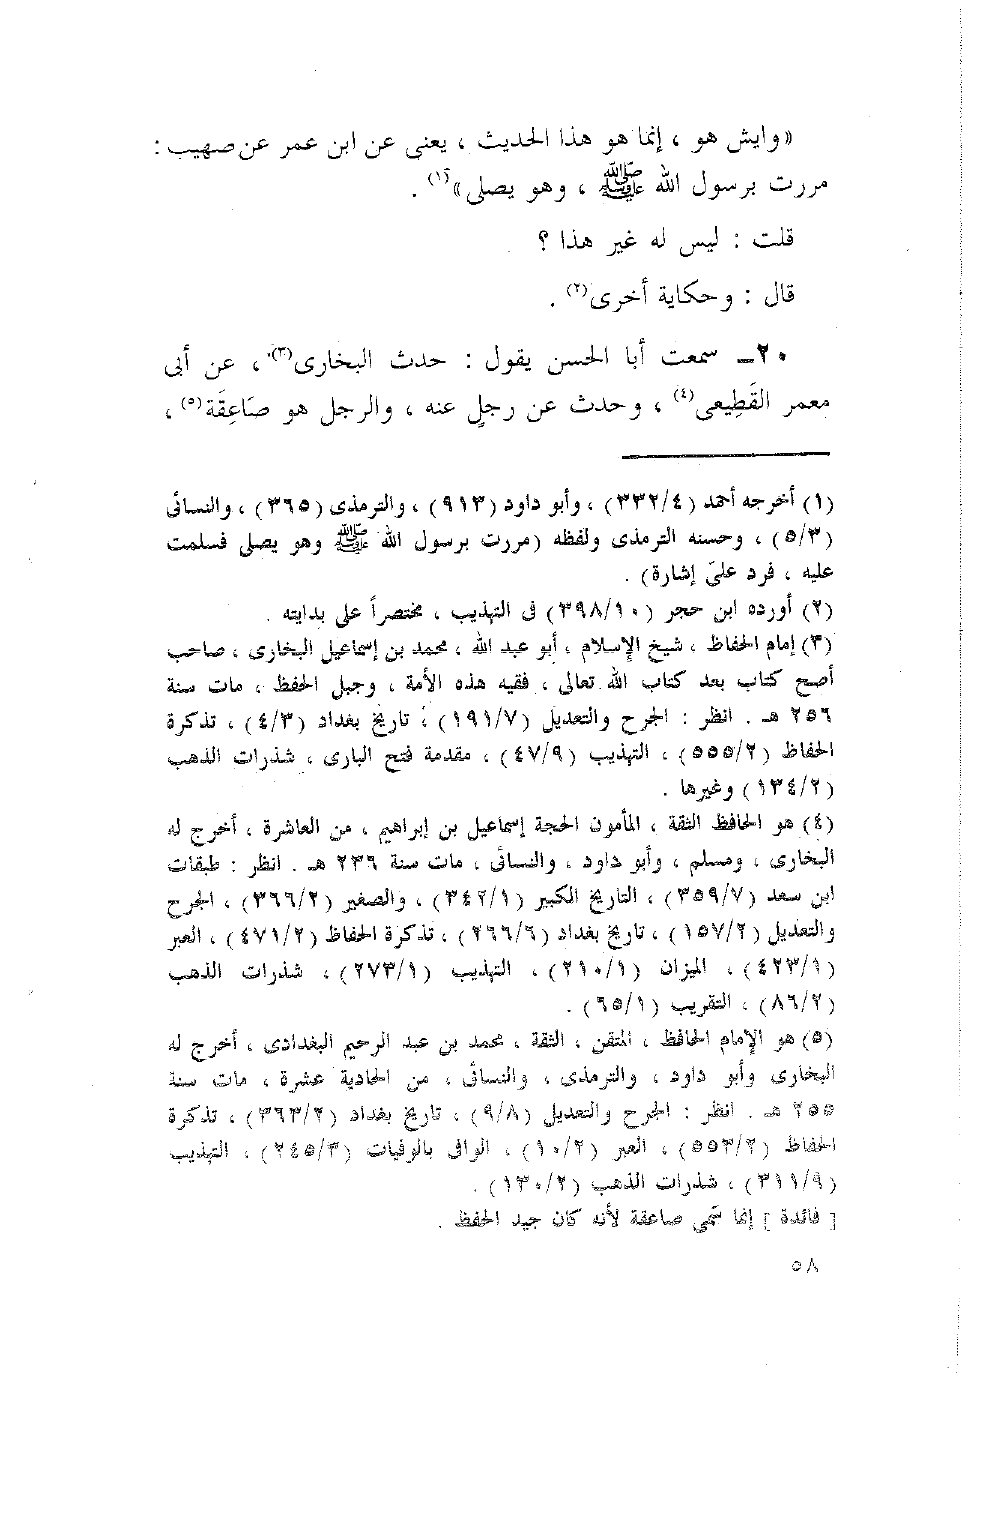 «وايش هو ، إنما هو هذا الحديث ، يعنى عن ابن عمر عن صهيب :
مررت برسول الله ﷺ ، وهو يصلى»(١) .
قلت : ليس له غير هذا ؟
قال : وحكاية أخرى(٢) .
٢٠ـ سمعت أبا الحسن يقول : حدث البخارى(٣) ، عن أبى
معمر القَطِيعى(٤) ، وحدث عن رجلٍ عنه ، والرجل هو صَاعِقَة(٥) ،
(١) أخرجه أحمد (٣٣٢/٤) ، وأبو داود (٩١٣) ، والترمذى (٣٦٥) ، والنسائى
(٥/٣) ، وحسنه الترمذى ولفظه (مررت برسول الله ﷺ وهو يصلى فسلمت
عليه ، فرد علىّ إشارة) .
(٢) أورده ابن حجر (٣٩٨/١٠) فى التهذيب ، مختصراً على بدايته .
(٣) إمام الحفاظ ، شيخ الإسلام ، أبو عبد الله ، محمد بن إسماعيل البخارى ، صاحب
أصح كتاب بعد كتاب الله تعالى ، فقيه هذه الأمة ، وجبل الحفظ ، مات سنة
٢٥٦ هـ . انظر : الجرح والتعديل (١٩١/٧) ، تاريخ بغداد (٤/٣) ، تذكرة
الحفاظ (٥٥٥/٢) ، التهذيب (٤٧/٩) ، مقدمة فتح البارى ، شذرات الذهب
(١٣٤/٢) وغيرها .
(٤) هو الحافظ الثقة ، المأمون الحجة إسماعيل بن إبراهيم ، من العاشرة ، أخرج له
البخارى ، ومسلم ، وأبو داود ، والنسائى ، مات سنة ٢٣٦ هـ . انظر : طبقات
ابن سعد (٣٥٩/٧) ، التاريخ الكبير (٣٤٢/١) ، والصغير (٣٦٦/٢) ، الجرح
والتعديل (١٥٧/٢) ، تاريخ بغداد (٢٦٦/٦) ، تذكرة الحفاظ (٤٧١/٢) ، العبر
(٤٢٣/١) ، الميزان (٢١٠/١) ، التهذيب (٢٧٣/١) ، شذرات الذهب
(٨٦/٢) ، التقريب (٦٥/١) .
(٥) هو الإمام الحافظ ، المتقن ، الثقة ، محمد بن عبد الرحيم البغدادى ، أخرج له
البخارى وأبو داود ، والترمذى ، والنسائى ، من الحادية عشرة ، مات سنة
٢٥٥ هـ . انظر : الجرح والتعديل (٩/٨) ، تاريخ بغداد (٣٦٣/٢) ، تذكرة
الحفاظ (٥٥٣/٢) ، العبر (١٠/٢) ، الوافى بالوفيات (٢٤٥/٣) ، التهذيب
(٣١١/٩) ، شذرات الذهب (١٣٠/٢) .
[ فائدة ] إنما سُمِّى صاعقة لأنه كان جيد الحفظ .
٥٨